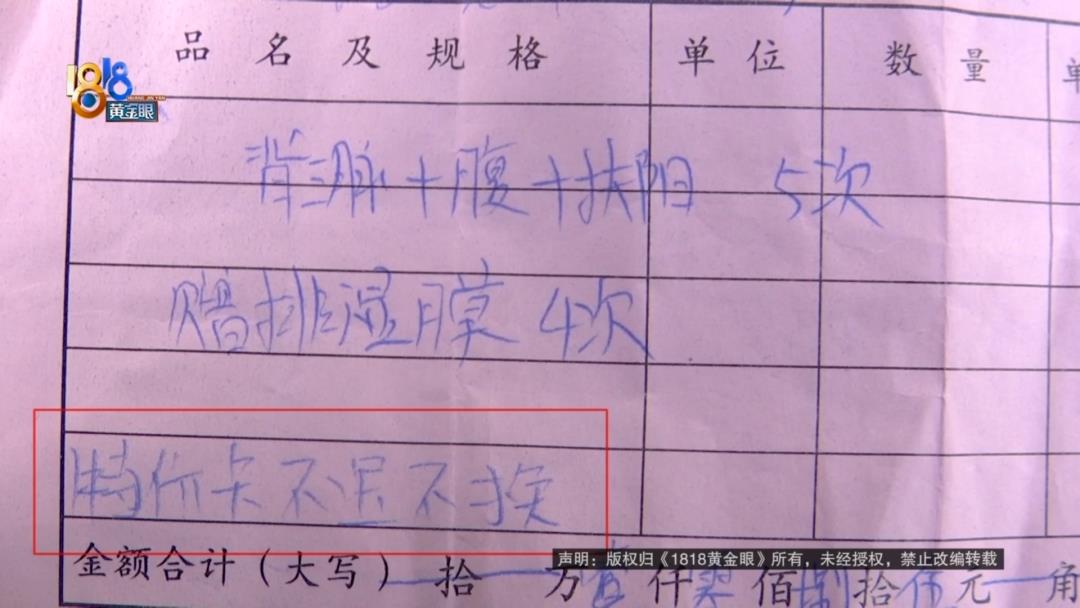 品名及规格 单位 数量 单
1818
黄金眼
背三脉+腹+扶阳 5次
赠排湿膜 4次
特价卡不退不换
声明：版权归《1818黄金眼》所有，未经授权，禁止改编转载
金额合计（大写） 拾 万 仟 佰 拾 元 角